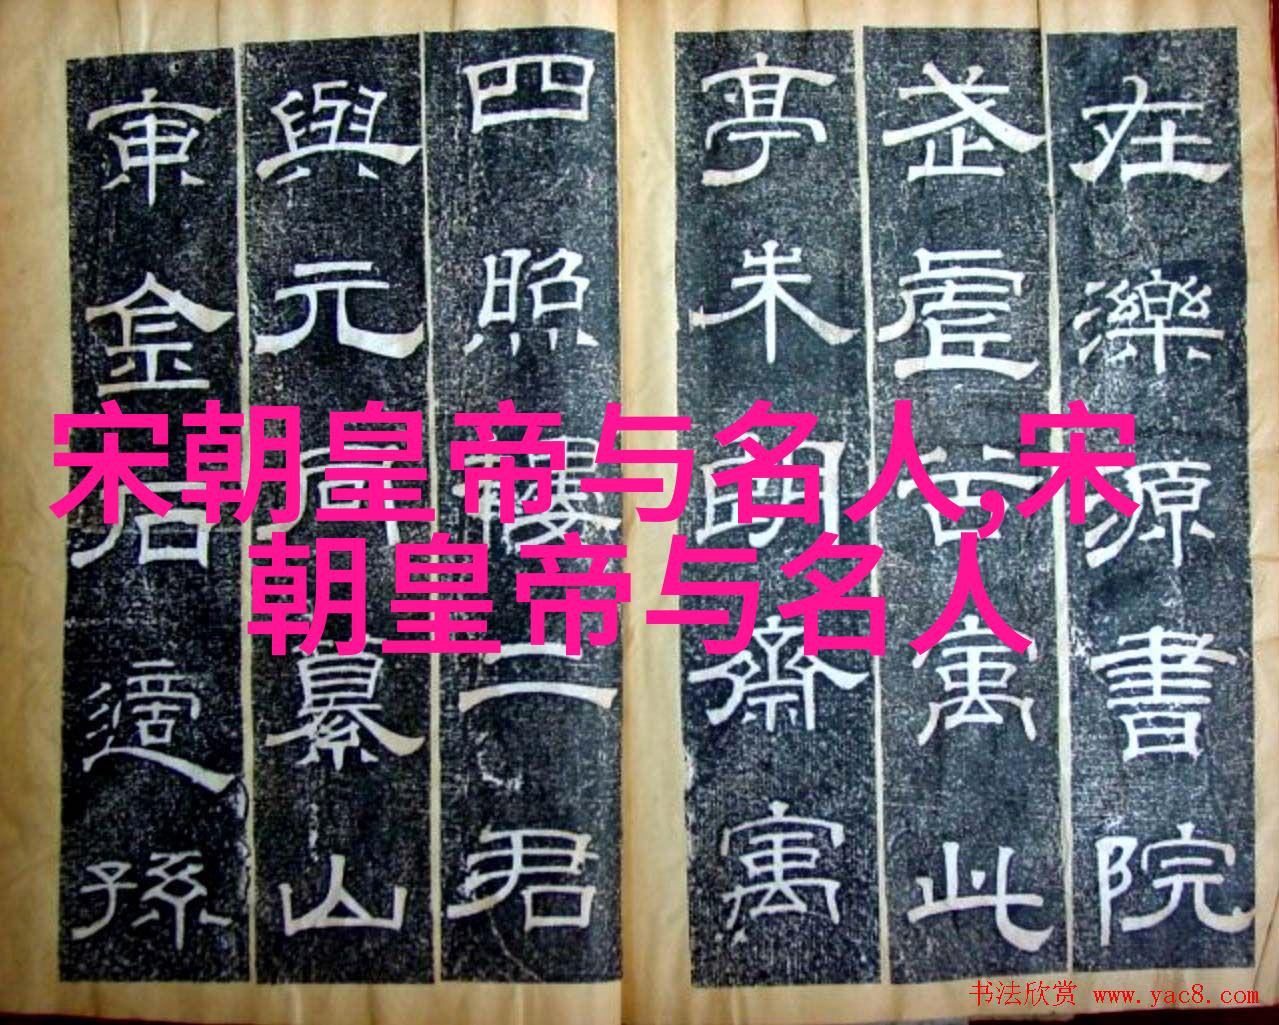 在濼源書院
武虛谷寓此
亭朱朗齋寓
四照樓二君
與元同纂山
東金石適孫
宋朝皇帝与名人,宋
朝皇帝与名人
书法欣赏 www.yac8.com